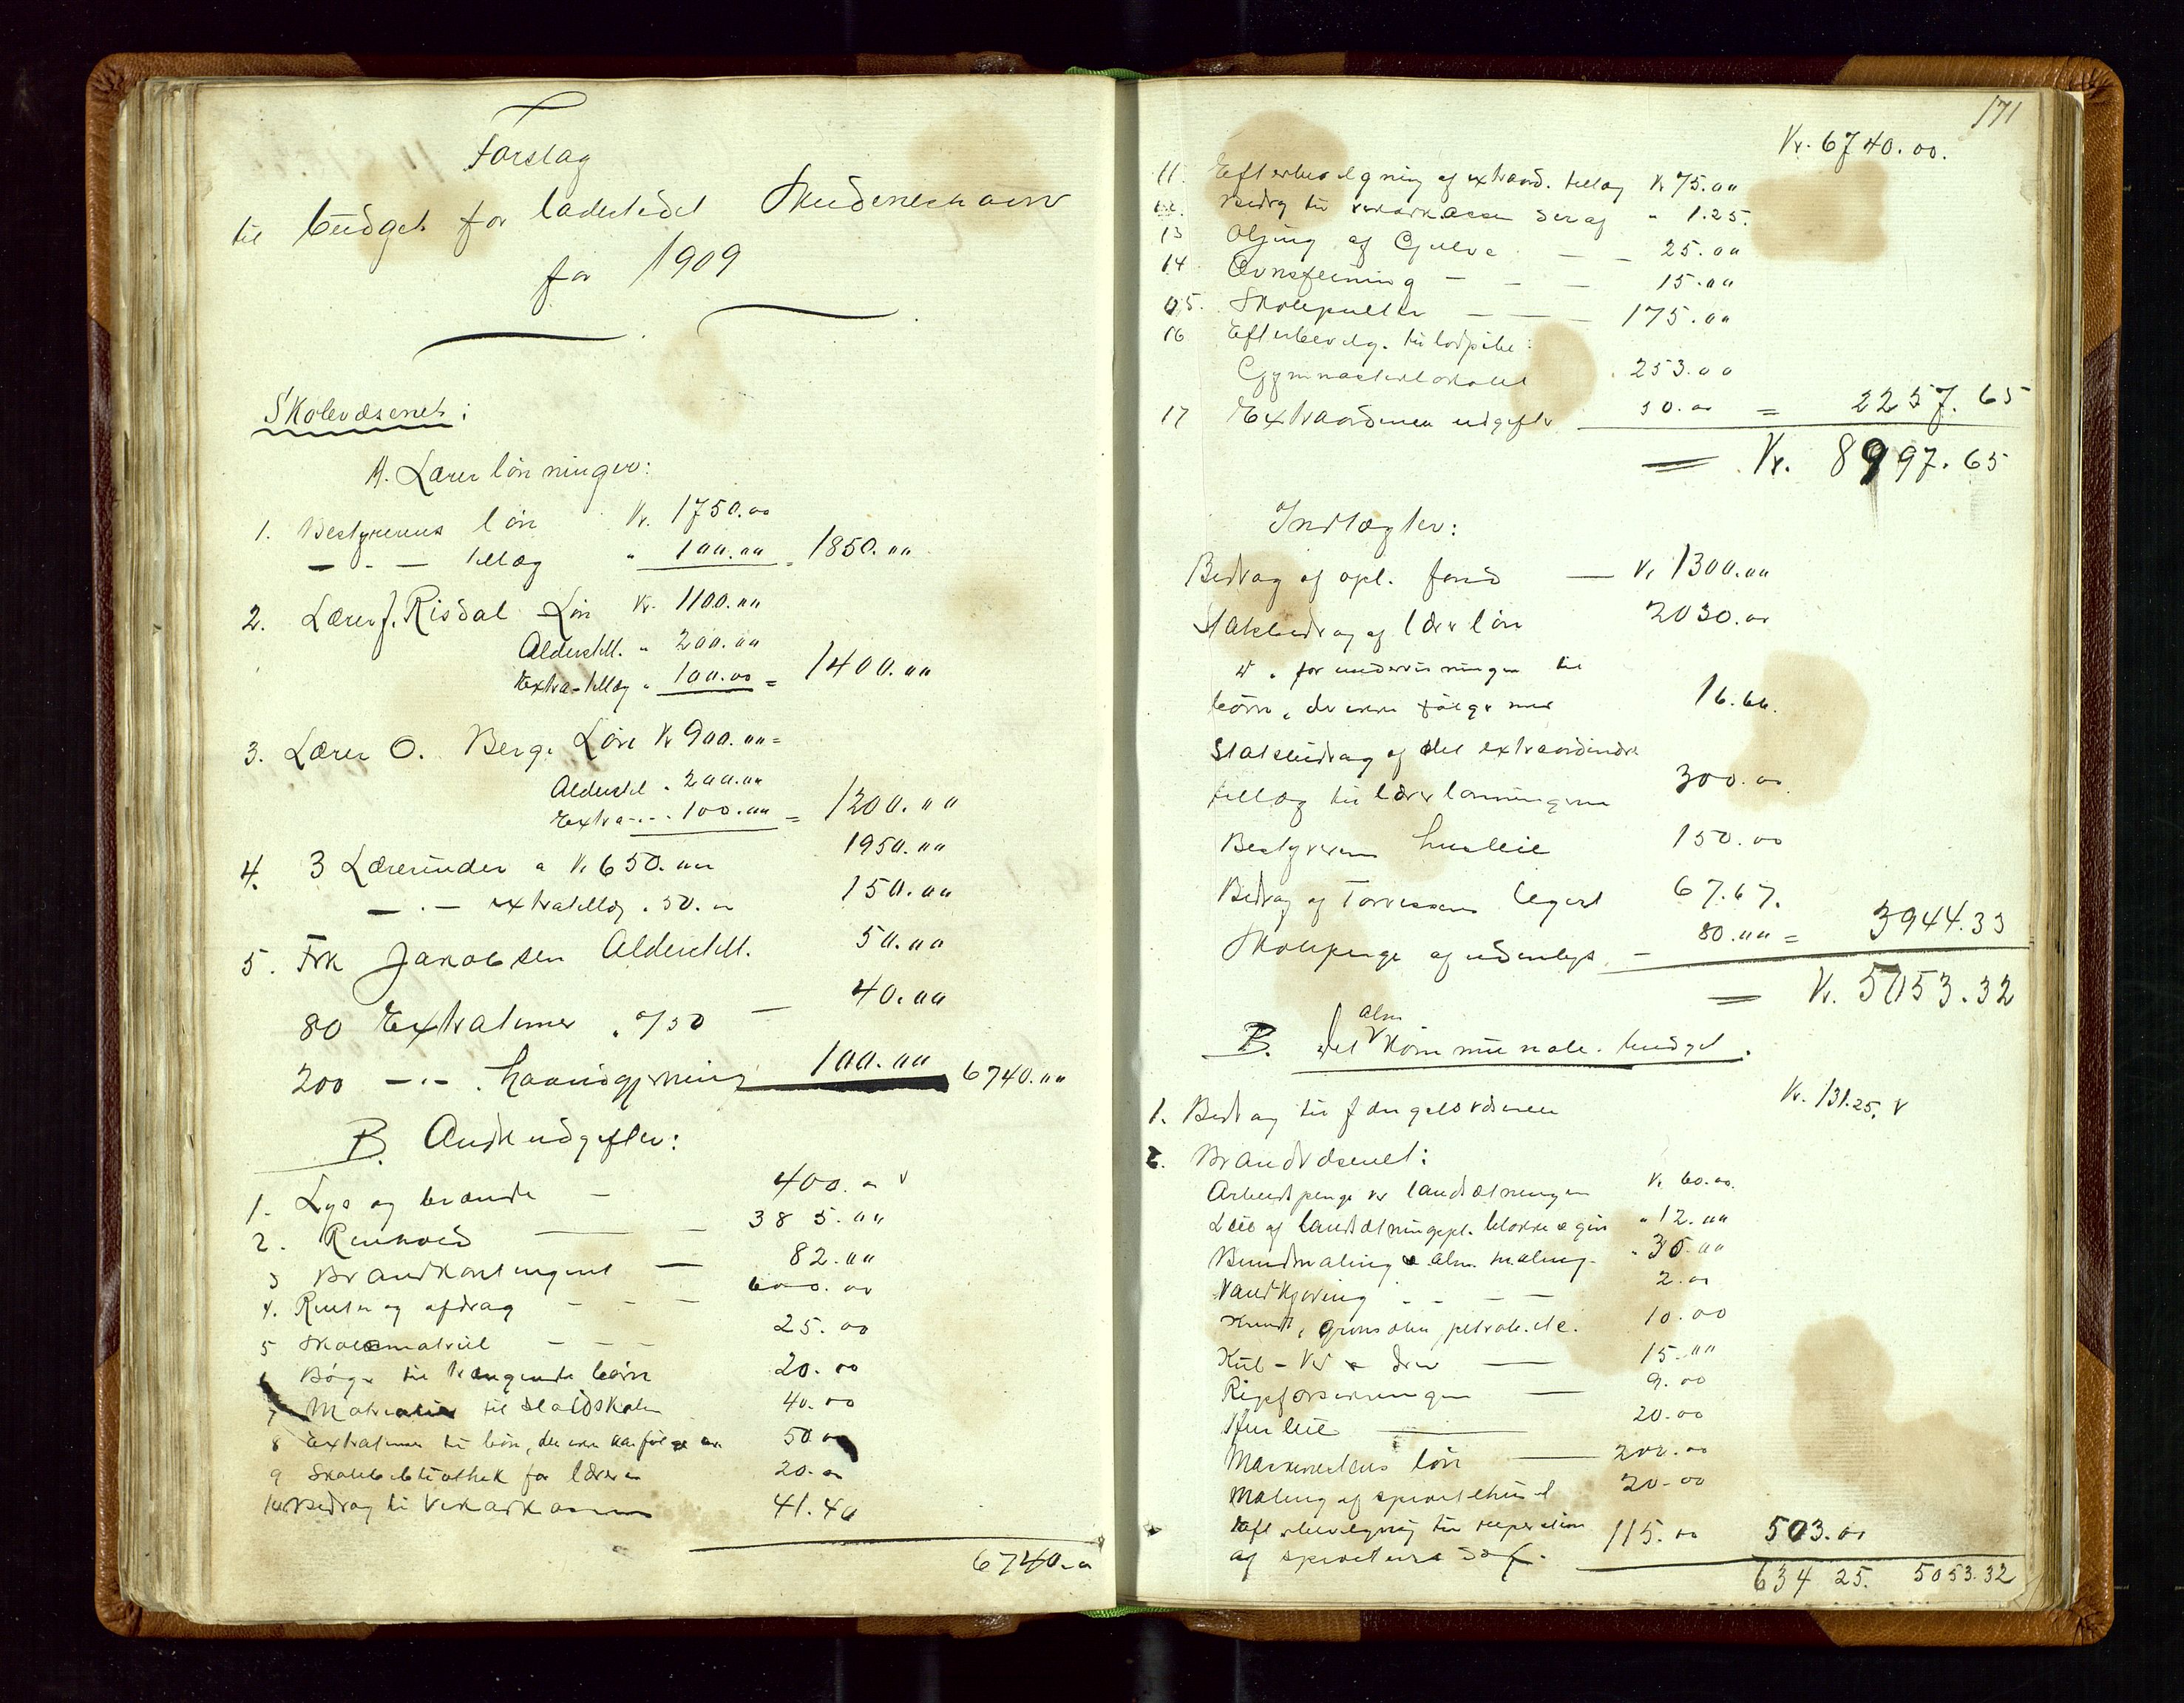 Forslag
til budget for ladestedet Skudeneshavn
for 1909
Skolevæsenet:
A. Lærerlønninger:
1. Bestyrerens løn Kr. 1750.00
— " — tillæg " 100.00 = 1850.00
2. Lærer J. Risdal Løn Kr. 1100.00
Alderstill. " 200.00
Extra-tillæg " 100.00 = 1400.00
3. Lærer O. Berge Løn Kr 900.00 =
Alderstil " 200.00
Extra - " - 100.00 = 1200.00
4. 3 Lærerinder a Kr 650.00 1950.00
— " — extratillæg " 50.00 150.00
5. Frk Jakobsen Alderstill. 50.00
80 Extratimer " 0/50 — 40.00
200 — " — haandgjerning 100.00 6740.00
B. Andre udgifter:
1. Lys og brænde — 400.00
2. Renhold — 385.00
3 Brandkontingent — 82.00
4. Renter og afdrag - - - 600.00
5 Skolemateriel - - - 25.00
6 Bøger til trængende børn 20.00
7 Materialier til sløidskolen 40.00
8 Extratimer til børn, der ikke kan følge 50.00
9 Skolebibliothek for lærere 20.00
10 Bidrag til Vikarkassen 41.40
6740.00
171
Kr. 6740.00.
11. Efterbevilgning af extraord. tillæg Kr 75.00
12. Bidrag til vikarkassen deraf " 1.25.
13 Oljing af Gulve - - 25.00
14 Ovnsfeining - - - 15.00
15. Skolepulter - - - 175.00
16 Efterbevilg. til
Gymnastiklokalet 253.00
17 Extraordinære udgifter 50.00 = 2257.65
= Kr. 8997.65
Indtægter:
Bidrag af opl. fond — Kr 1300.00
Statsbidrag af lærerløn 2030.00
" for undervisningen til
børn, der ikke følger med 16.66.
Statsbidrag af det extraordinære
tillæg til lærerlønningerne 300.00
Bestyrerens husleie 150.00
Bidrag af Torvessens legat 67.67.
Skolepenge af udenbys — 80.00 = 3944.33
= Kr. 5053.32
B. det alm Kommunale budget.
1. Bidrag til fængelsvæsenet Kr. 131.25.
2. Brandvæsenet:
Arbeidspenge ved landsætningen Kr. 60.00.
Leie af landsætningspl. blokke & gin " 12.00
Bundmaling & alm. maling " 35.00
Vandkjøring - - - - 2.00
Grønsæbe, petrol. etc. 10.00
Kul - Ved & — 15.00
Rigsforsikringen — 9.00
Husleie — 20.00
Maskinistens løn — 200.00
Maling af sprøitehuset 20.00
Efterbevilgning til reperation
af sprøiterne 115.00 503.00
634 25. 5053.32